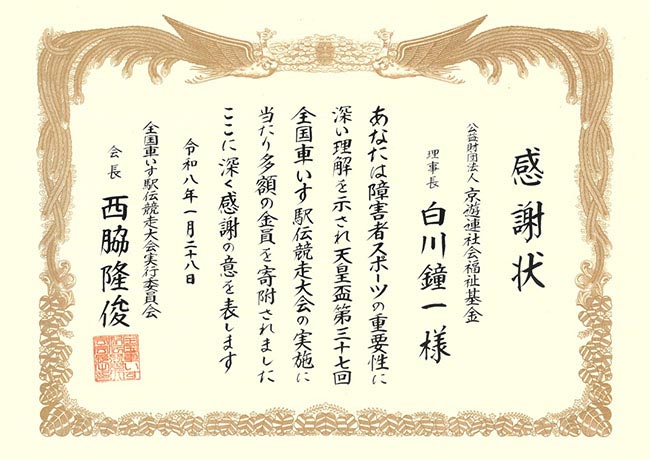 感謝状
公益財団法人 京遊連社会福祉基金
理事長 白川鐘一様
あなたは障害者スポーツの重要性に
深い理解を示され天皇盃第三十七回
全国車いす駅伝競走大会の実施に
当たり多額の金員を寄附されました
ここに深く感謝の意を表します
令和八年一月二十八日
全国車いす駅伝競走大会実行委員会
会長 西脇隆俊